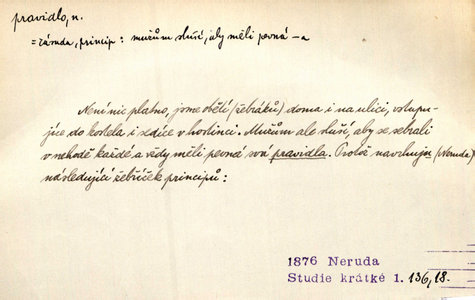 pravidlo, n.
= zásada, princip: mužům sluší, aby měli pevná –a
Není nic platno, jsme obětí (žebráků) doma i na ulici, vstupu-
jíce do kostela i sedíce v hostinci. Mužům ale sluší, aby se sebrali
v nehodě každé a vždy měli pevná svá pravidla. Pročež navrhuju (Neruda)
následující žebříček principů:
1876 Neruda
Studie krátké 1. 136,18.